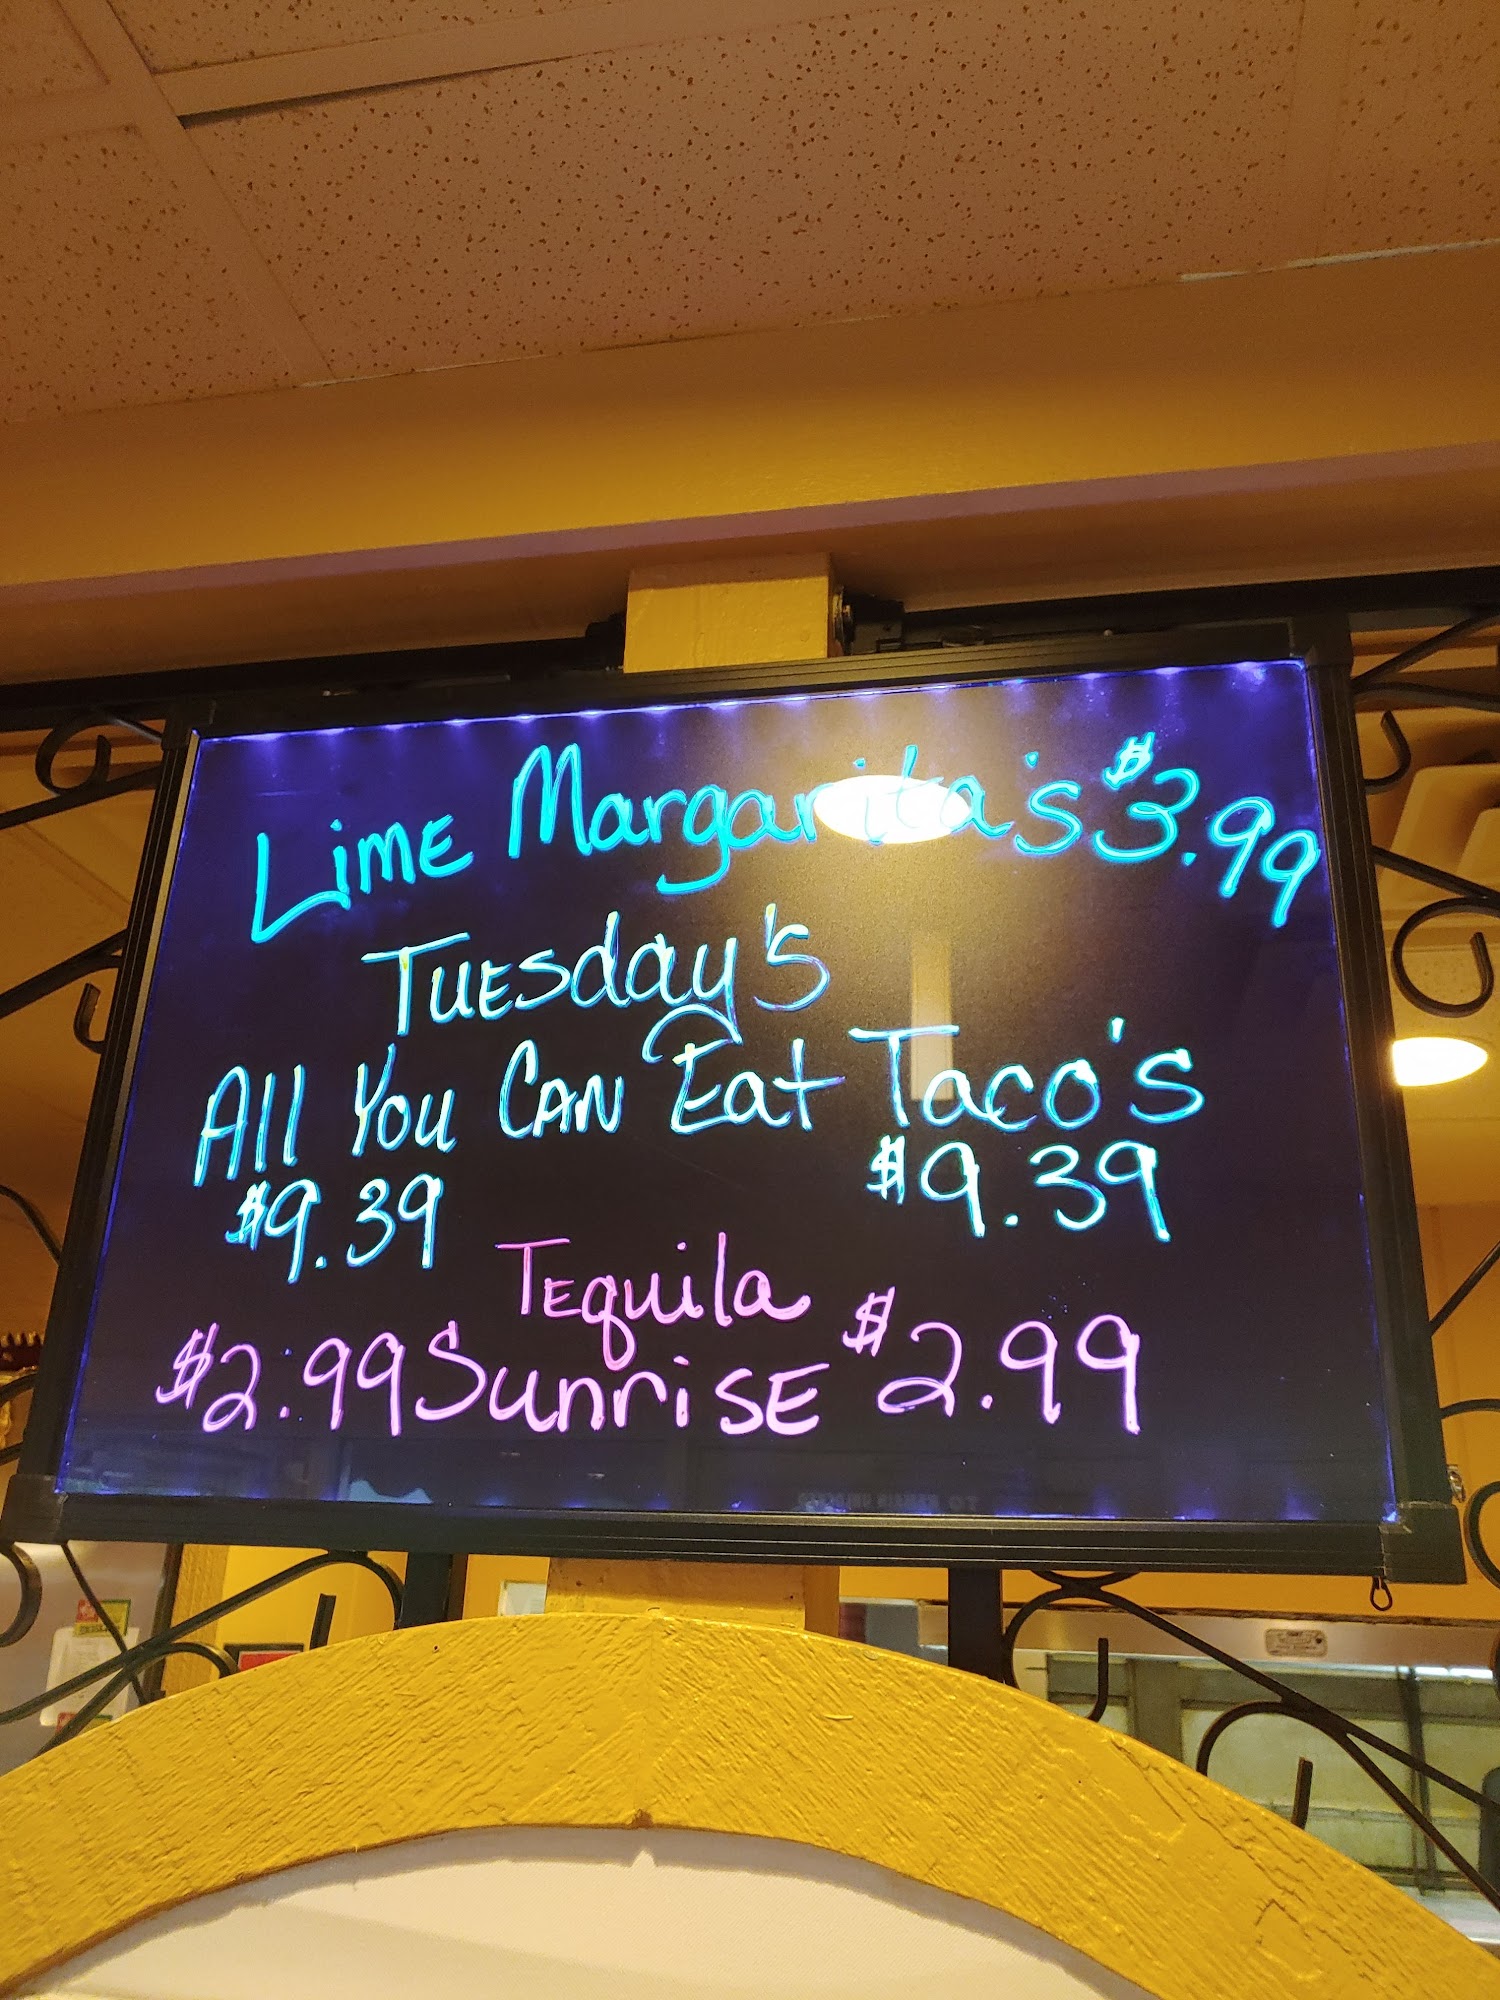 Lime Margarita's $3.99
Tuesday's
All You Can Eat Taco's
$9.39 $9.39
Tequila
$2.99 Sunrise $2.99